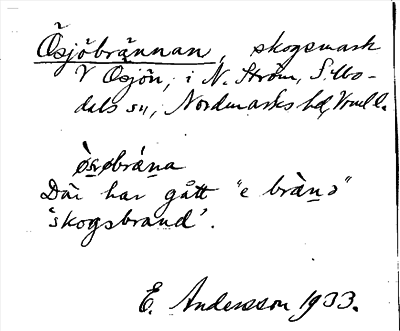 Ösjöbrännan, skogsmark
V Ösjön, i N. Ström, Sillbo-
dals sn, Nordmarks hd, Vrml l.
Där har gått "e bràn̥ə"
'skogsbrand'.
E. Andersson 1933.